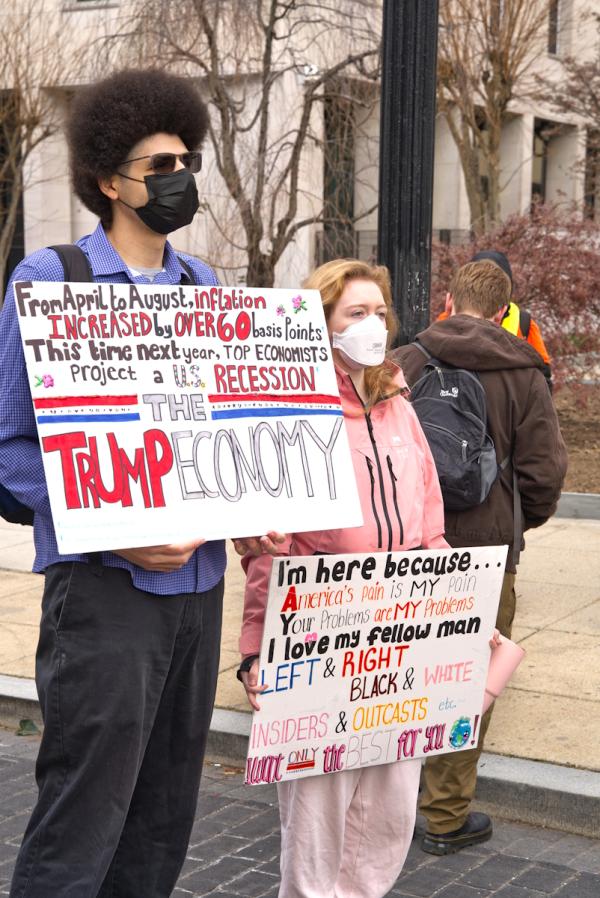 From April to August, inflation
INCREASED by OVER 60 basis Points
This time next year, TOP ECONOMISTS
Project a U.S. RECESSION
THE
TRUMP ECONOMY
I'm here because...
America's pain is MY pain
Your Problems are MY Problems
I love my fellow man
LEFT & RIGHT
BLACK & WHITE
INSIDERS & OUTCASTS etc.
I want ONLY the BEST for you!